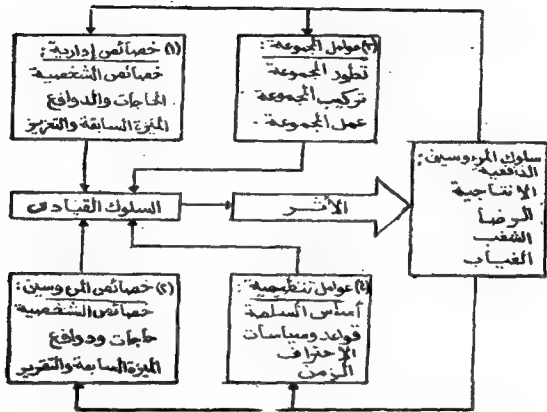 (١) خصائص إدارية:
خصائص الشخصية
الحاجات والدوافع
الميزة السابقة والتعزيز
(٣) عوامل المجموعة:
تطور المجموعة
تركيب المجموعة
عمل المجموعة.
سلوك المرءوسين:
الدافعية
الانتاجية
الرضا
الشغب
الغياب
السلوك القيادى
الأثر
(٢) خصائص المرءوسين:
خصائص الشخصية
حاجات ودوافع
الميزة السابقة والتقرير
(٤) عوامل تنظيمية:
أساس السلطة
قواعد وسياسات
الاحتراف
الزمن